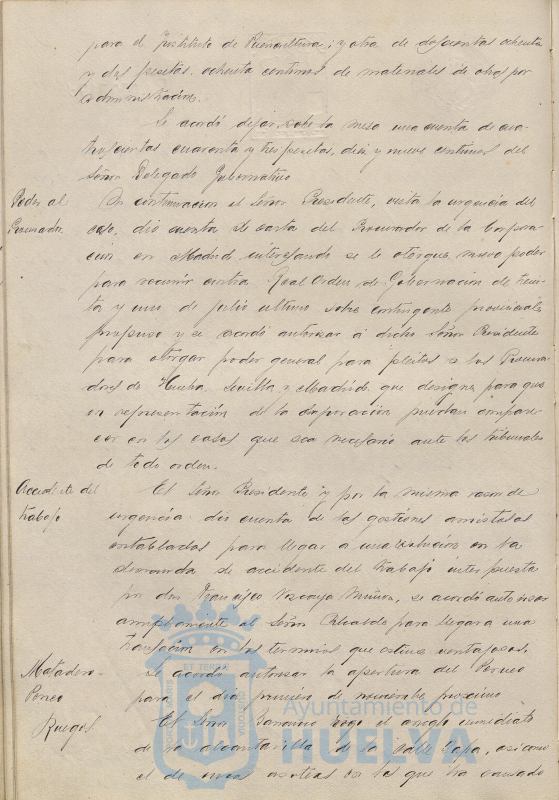 para el Instituto de Puericultura; y otra de doscientas ochenta
y dos pesetas, ochenta centimos de materiales de obras por
administración.
Se acordó dejar sobre la mesa una cuenta de cua-
trocientas cuarenta y tres pesetas, diez y nueve centimos del
Señor Delegado Gubernativo
Poder al
Procurador
En continuacion el Señor Presidente, vista la urgencia del
caso, dio cuenta de carta del Procurador de la Corpora-
cion en Madrid interesando se le otorgue nuevo poder
para recurrir contra Real Orden de Gobernacion de trein-
ta y uno de julio ultimo sobre contingente provincial,
propuso y se acordó autorizar á dicho Señor Presidente
para otorgar poder general para pleitos a los Procura-
dores de Huelva, Sevilla y Madrid que designe para que
en representación de la Corporacion puedan compare-
cer en los casos que sea necesario ante los tribunales
de todo orden.
Accidente del
trabajo
El Señor Presidente y por la misma razon de
urgencia dió cuenta de las gestiones amistosas
entabladas para llegar a una solucion en la
demanda de accidente del trabajo interpuesta
por don Francisco Vizcaya Muñoz, se acordó autorizar
ampliamente al Señor Alcalde para llegar á una
transación en los terminos que estime ventajosos.
Matadero-
Porco
Se acordó autorizar la apertura del Porcuno
para el dia primero de noviembre proximo
Ruegos
El Señor rogó el arreglo inmediato
de una alcantarilla de la calle Rapa, asi como
el de unas en los que ha causado
ET TERRAE
Ayuntamiento de
HUELVA